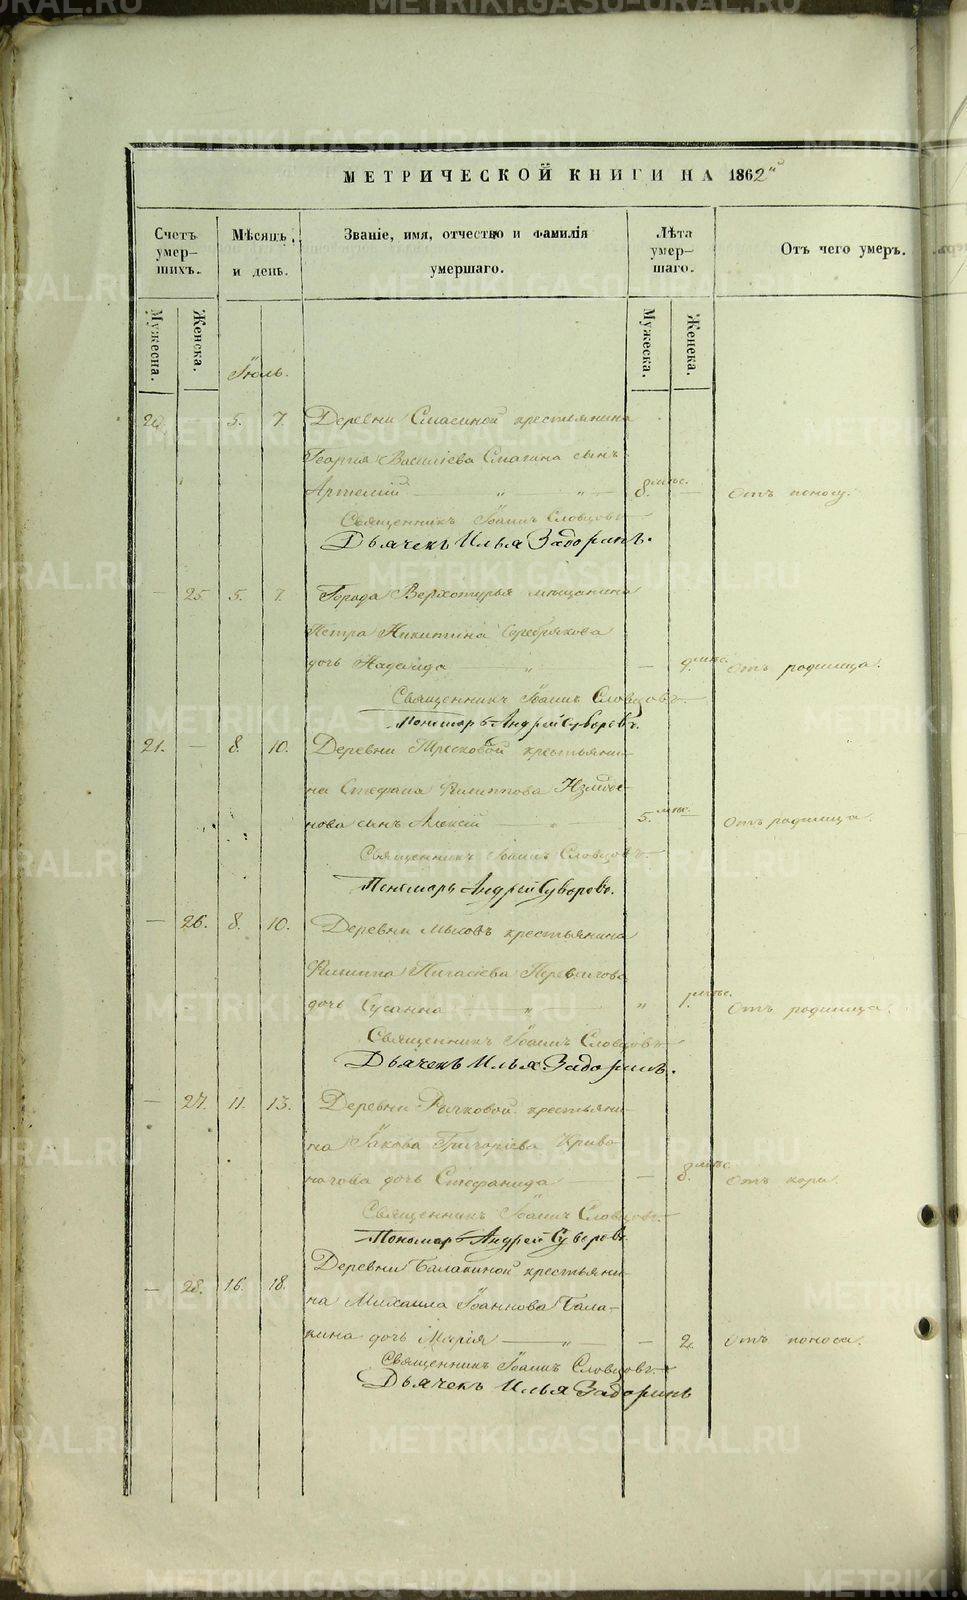 МЕТРИЧЕСКОЙ КНИГИ НА 1862й
Счетъ умер-шихъ.
Мѣсяцъ и день.
Званіе, имя, отчество и фамилія умершаго.
Лѣта умер-шаго.
Отъ чего умеръ.
Мужеска. Женска. Мужеска. Женска.
Іюль.
20. 5. 7. Деревни Смагиной крестьянина
Георгія Василіева Смагина сынъ
Артемій — „ — „ — 8. мѣс. — Отъ поносу.
Священникъ Іоаннъ Словцовъ
Дьячекъ Илья Задоринъ.
— 25. 5. 7. Города Верхотурья мѣщанина
Петра Никитина Серебрякова
дочь Надежда — „ — 9. мѣс. Отъ родимца.
Священникъ Іоаннъ Словцовъ
Пономарь Андрей Суворовъ.
21. — 8. 10. Деревни крестьяни-
на Стефана Филиппова Измоде-
нова сынъ Алексій — „ 5. мѣс. — Отъ родимца.
Священникъ Іоаннъ Словцовъ
Пономарь Андрей Суворовъ.
— 26. 8. 10. Деревни Мысовъ крестьянина
Филиппа Пигасіева
дочь Сусанна — „ — „ 1. мѣс. Отъ родимца.
Священникъ Іоаннъ Словцовъ
Дьячекъ Илья Задоринъ.
— 27. 11. 13. Деревни Рычковой крестьяни-
на Іакова Григоріева Криво
ногова дочь Стефанида — — 8. мѣс. Отъ кори.
Священникъ Іоаннъ Словцовъ.
Пономарь Андрей Суворовъ.
— 28. 16. 18. Деревни Балакиной крестьяни-
на Михаила Іоаннова Бала-
кина дочь Марія — „ — 2. Отъ поноса.
Священникъ Іоаннъ Словцовъ.
Дьячекъ Илья Задоринъ
METRIKI.GASO-URAL.RU